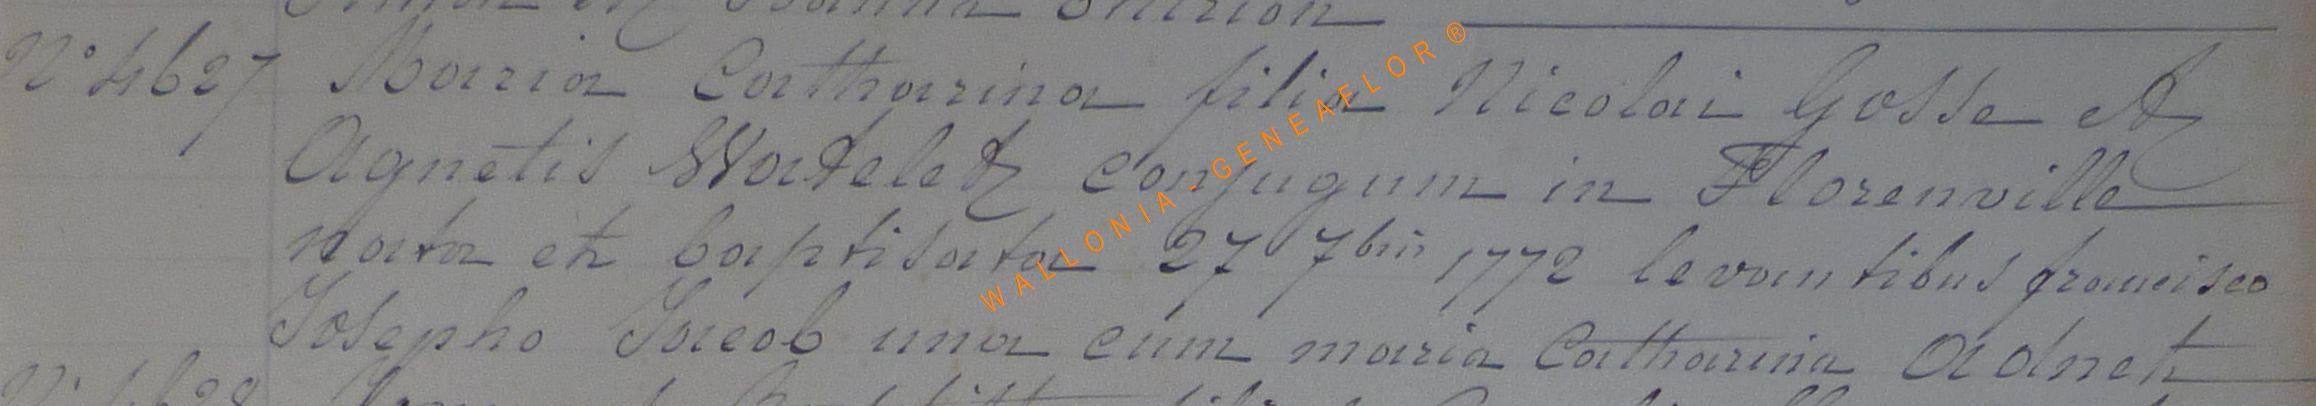 N° 4627 Maria Catharina filia Nicolai Gosse et
Agnetis Watelet conjugum in Florenville
nata et baptisata 27 7bris 1772 levantibus francisco
Josepho Jacob una cum maria Catharina Adnet
WALLONIA - GENEAFLOR ®